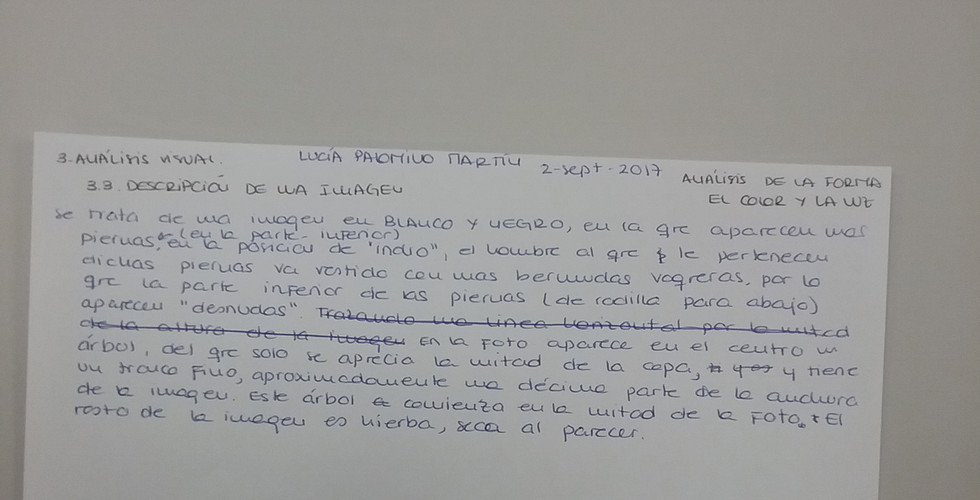 3. ANÁLISIS VISUAL.
LUCÍA PALOMINO MARTÍN
2-sept-2017
ANÁLISIS DE LA FORMA
EL COLOR Y LA LUZ
3.3. DESCRIPCIÓN DE UNA IMAGEN
Se trata de una imagen en BLANCO Y NEGRO, en la que aparecen unas
piernas (en la parte inferior) en la posición de "indio", el hombre al que le pertenecen
dichas piernas va vestido con unas bermudas vaqueras, por lo
que la parte inferior de las piernas (de rodilla para abajo)
aparecen "desnudas". Trazando una línea horizontal por la mitad
de la altura de la imagen En la foto aparece en el centro un
árbol, del que solo se aprecia la mitad de la copa, y tiene
un tronco fino, aproximadamente una décima parte de la anchura
de la imagen. Este árbol comienza en la mitad de la foto. * El
resto de la imagen es hierba, seca al parecer.